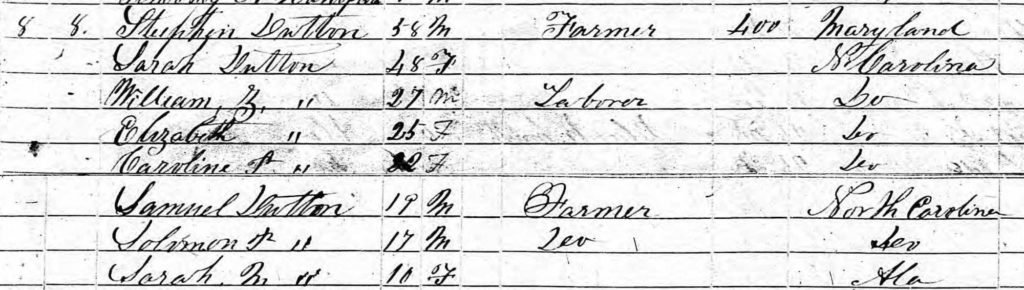 8 8. Stephin Dutton 58 M Farmer 400 Maryland
Sarah Dutton 48 F N Carolina
William, " 27 M Laborer Do
Elizabeth " 25 F Do
Caroline " 22 F Do
Samuel Dutton 19 M Farmer North Carolina
Solimon " 17 M Do Do
Sarah, M " 10 F Ala